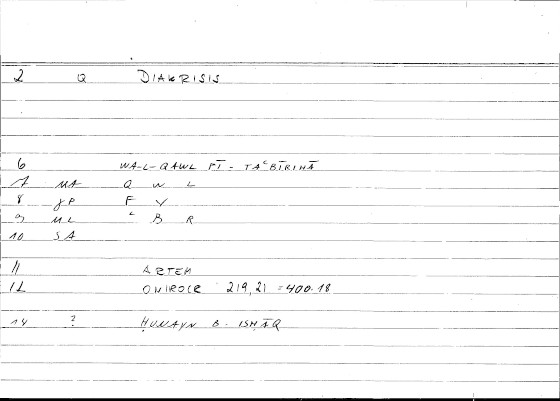 2 Q DIAKRISIS
6 WA-L-QAWL FĪ-TAʿBĪRIHĀ
7 MA Q W L
8 gP F Y
9 ML ʿ B R
10 SA
11 ARTEM
12 ONIROCR 219,21 = 400.18
14 ? ḤUNAYN B. ISḤĀQ